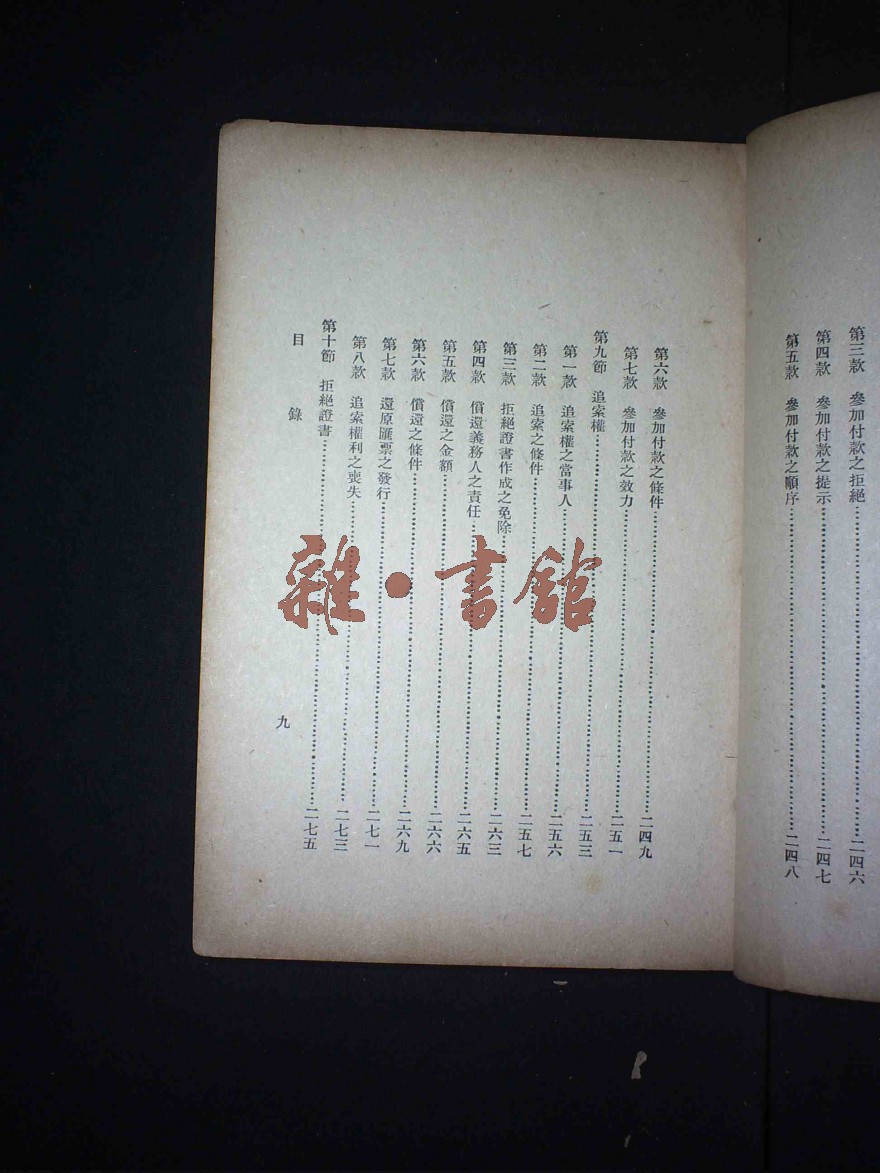 第三款　參加付款之拒絕……二四六
第四款　參加付款之提示……二四七
第五款　參加付款之順序……二四八
第六款　參加付款之條件……二四九
第七款　參加付款之效力……二五一
第九節　追索權……二五三
第一款　追索權之當事人……二五六
第二款　追索之條件……二五七
第三款　拒絕證書作成之免除……二六三
第四款　償還義務人之責任……二六五
第五款　償還之金額……二六六
第六款　償還之條件……二六九
第七款　還原匯票之發行……二七一
第八款　追索權利之喪失……二七三
第十節　拒絕證書……二七五
目錄
九
雜・書館